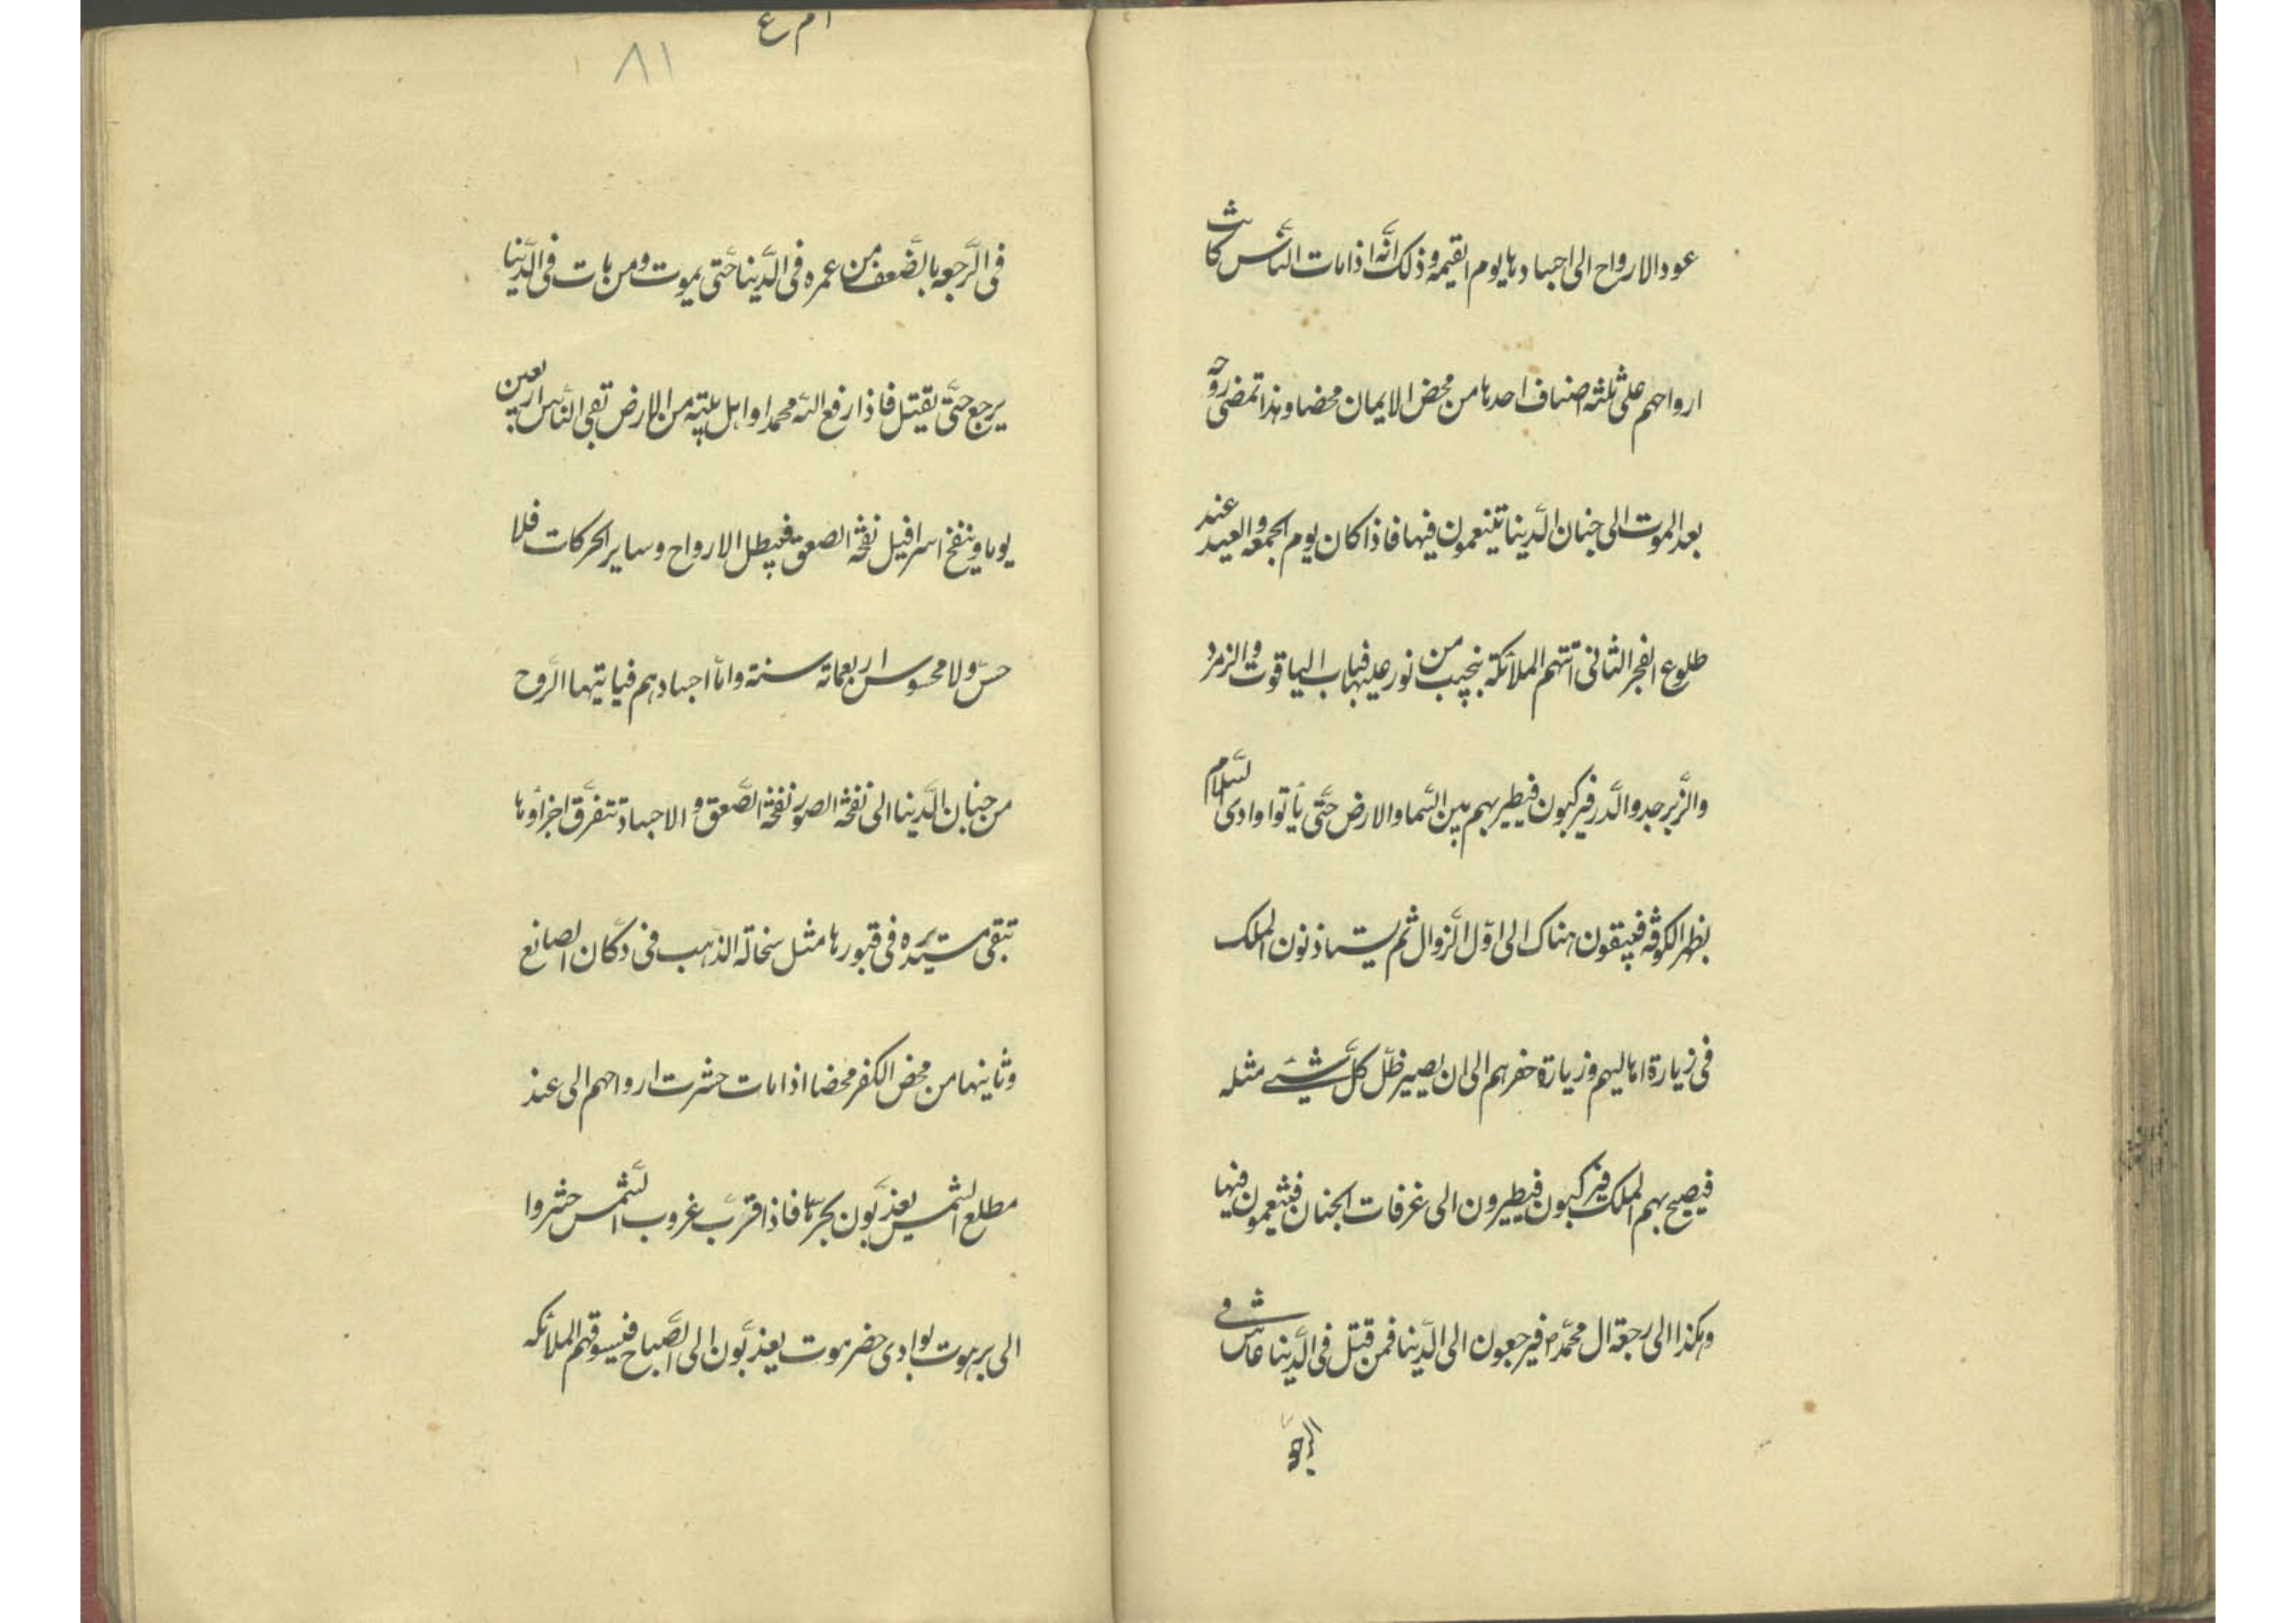 عود الارواح الى اجسادها يوم القيمه وذلك انّه اذا مات النّاس كانت
ارواحهم على ثلثه اصناف احدها من محض الايمان محضا و هذا تمضى روحه
بعد الموت الى جنان الدّنيا تتنعمون فيها فاذا كان يوم الجمعه و العيد عند
طلوع الفجر الثانى اتتهم الملائكة بنجيب من نور عليها قباب الياقوت و الزمرد
والزّبرجد والدّر فيركبون فيطير بهم بين السّما والارض حتّى يأتوا وادى السّلام
بظهر الكوفه فيبقون هناك الى اوّل الزّوال ثم يستاذنون الملك
فى زيارة اهاليهم و زيارة حفرهم الى ان يصير ظلّ كلّ شيئ مثله
فيصيح بهم الملك فيركبون فيطيرون الى غرفات الجنان فيتنعمون فيها
وهكذا الى رجعة ال محمّد ص فيرجعون الى الدّنيا فمن قتل فى الدّنيا عاش فى
٨١
فى الرّجعه بالضّعف من عمره فى الدّنيا حتّى يموت ومن مات فى الدّنيا
يرجع حتّى يقتل فاذا رفع اللّه محمدا و اهل بيته من الارض بقى النّاس اربعين
يوما و ينفخ اسرافيل نفخه الصعق فيبطل الارواح وساير الحركات فلا
حسّ ولا محسوس اربعمائة سنة وامّا اجسادهم فياتيها الرّوح
من جنان الدّنيا الى نفخة الصور نفخة الصّعق و الاجساد تتفرّق اجزاؤها
تبقى مستديره فى قبورها مثل سحالة الذهب فى دكّان الصانع
وثانيها من محض الكفر محضا اذا مات حشرت ارواحهم الى عند
مطلع الشّمس يعذّبون بحرّها فاذا قرب غروب الشّمس حشروا
الى برهوت بوادى حضرموت يعذّبون الى الصّباح فيسوقهم الملائكه